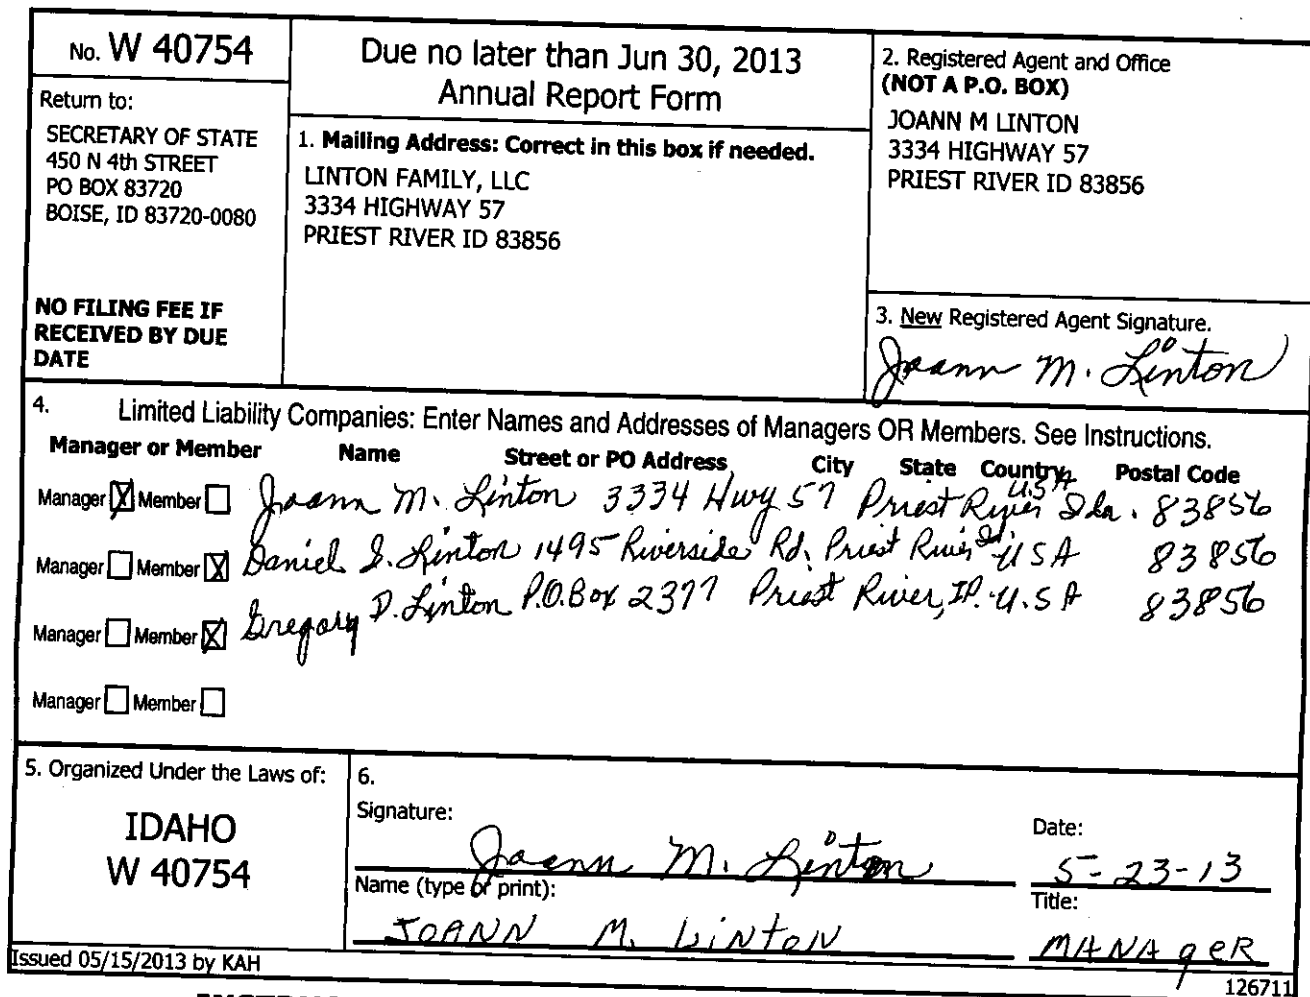 No. W 40754
Return to:
SECRETARY OF STATE
450 N 4th STREET
PO BOX 83720
BOISE, ID 83720-0080
NO FILING FEE IF
RECEIVED BY DUE
DATE
Due no later than Jun 30, 2013
Annual Report Form
1. Mailing Address: Correct in this box if needed.
LINTON FAMILY, LLC
3334 HIGHWAY 57
PRIEST RIVER ID 83856
2. Registered Agent and Office
(NOT A P.O. BOX)
JOANN M LINTON
3334 HIGHWAY 57
PRIEST RIVER ID 83856
3. New Registered Agent Signature.
Joann M. Linton
4. Limited Liability Companies: Enter Names and Addresses of Managers OR Members. See Instructions.
Manager or Member Name Street or PO Address City State Country Postal Code
Manager X Member Joann M. Linton 3334 Hwy 57 Priest River Ida. USA 83856
Manager Member X Daniel J. Linton 1495 Riverside Rd. Priest River Id. USA 83856
Manager Member X Gregory D. Linton P.O. Box 2377 Priest River, ID. U.S A 83856
Manager Member
5. Organized Under the Laws of:
IDAHO
W 40754
6.
Signature:
Joann M. Linton
Date:
5-23-13
Name (type or print):
JOANN M. LiNtoN
Title:
MANAgeR
Issued 05/15/2013 by KAH
126711